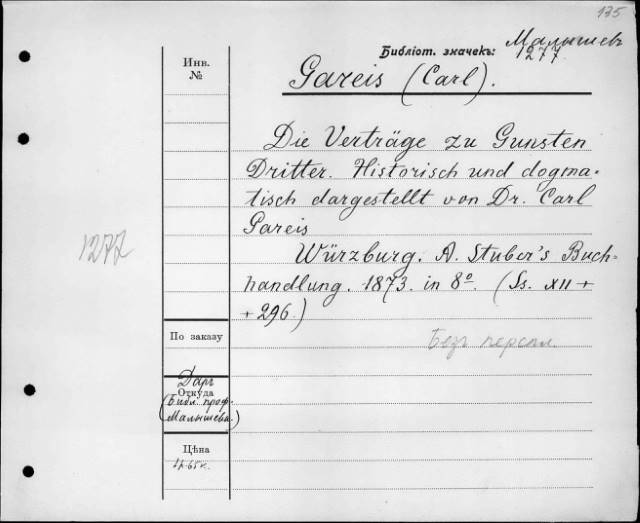 135
Библіот. значекъ: Малышевъ
277
Инв.
№
Gareis (Carl).
Die Verträge zu Gunsten
Dritter. Historisch und dogma-
tisch dargestellt von Dr. Carl
Gareis
Würzburg. A. Stuber's Buch-
handlung. 1873. in 8º. (Ss. XII +
+ 296.)
1277
По заказу
Безъ перепл
Даръ
Откуда
(Библ. проф.
Малышева.)
Цѣна